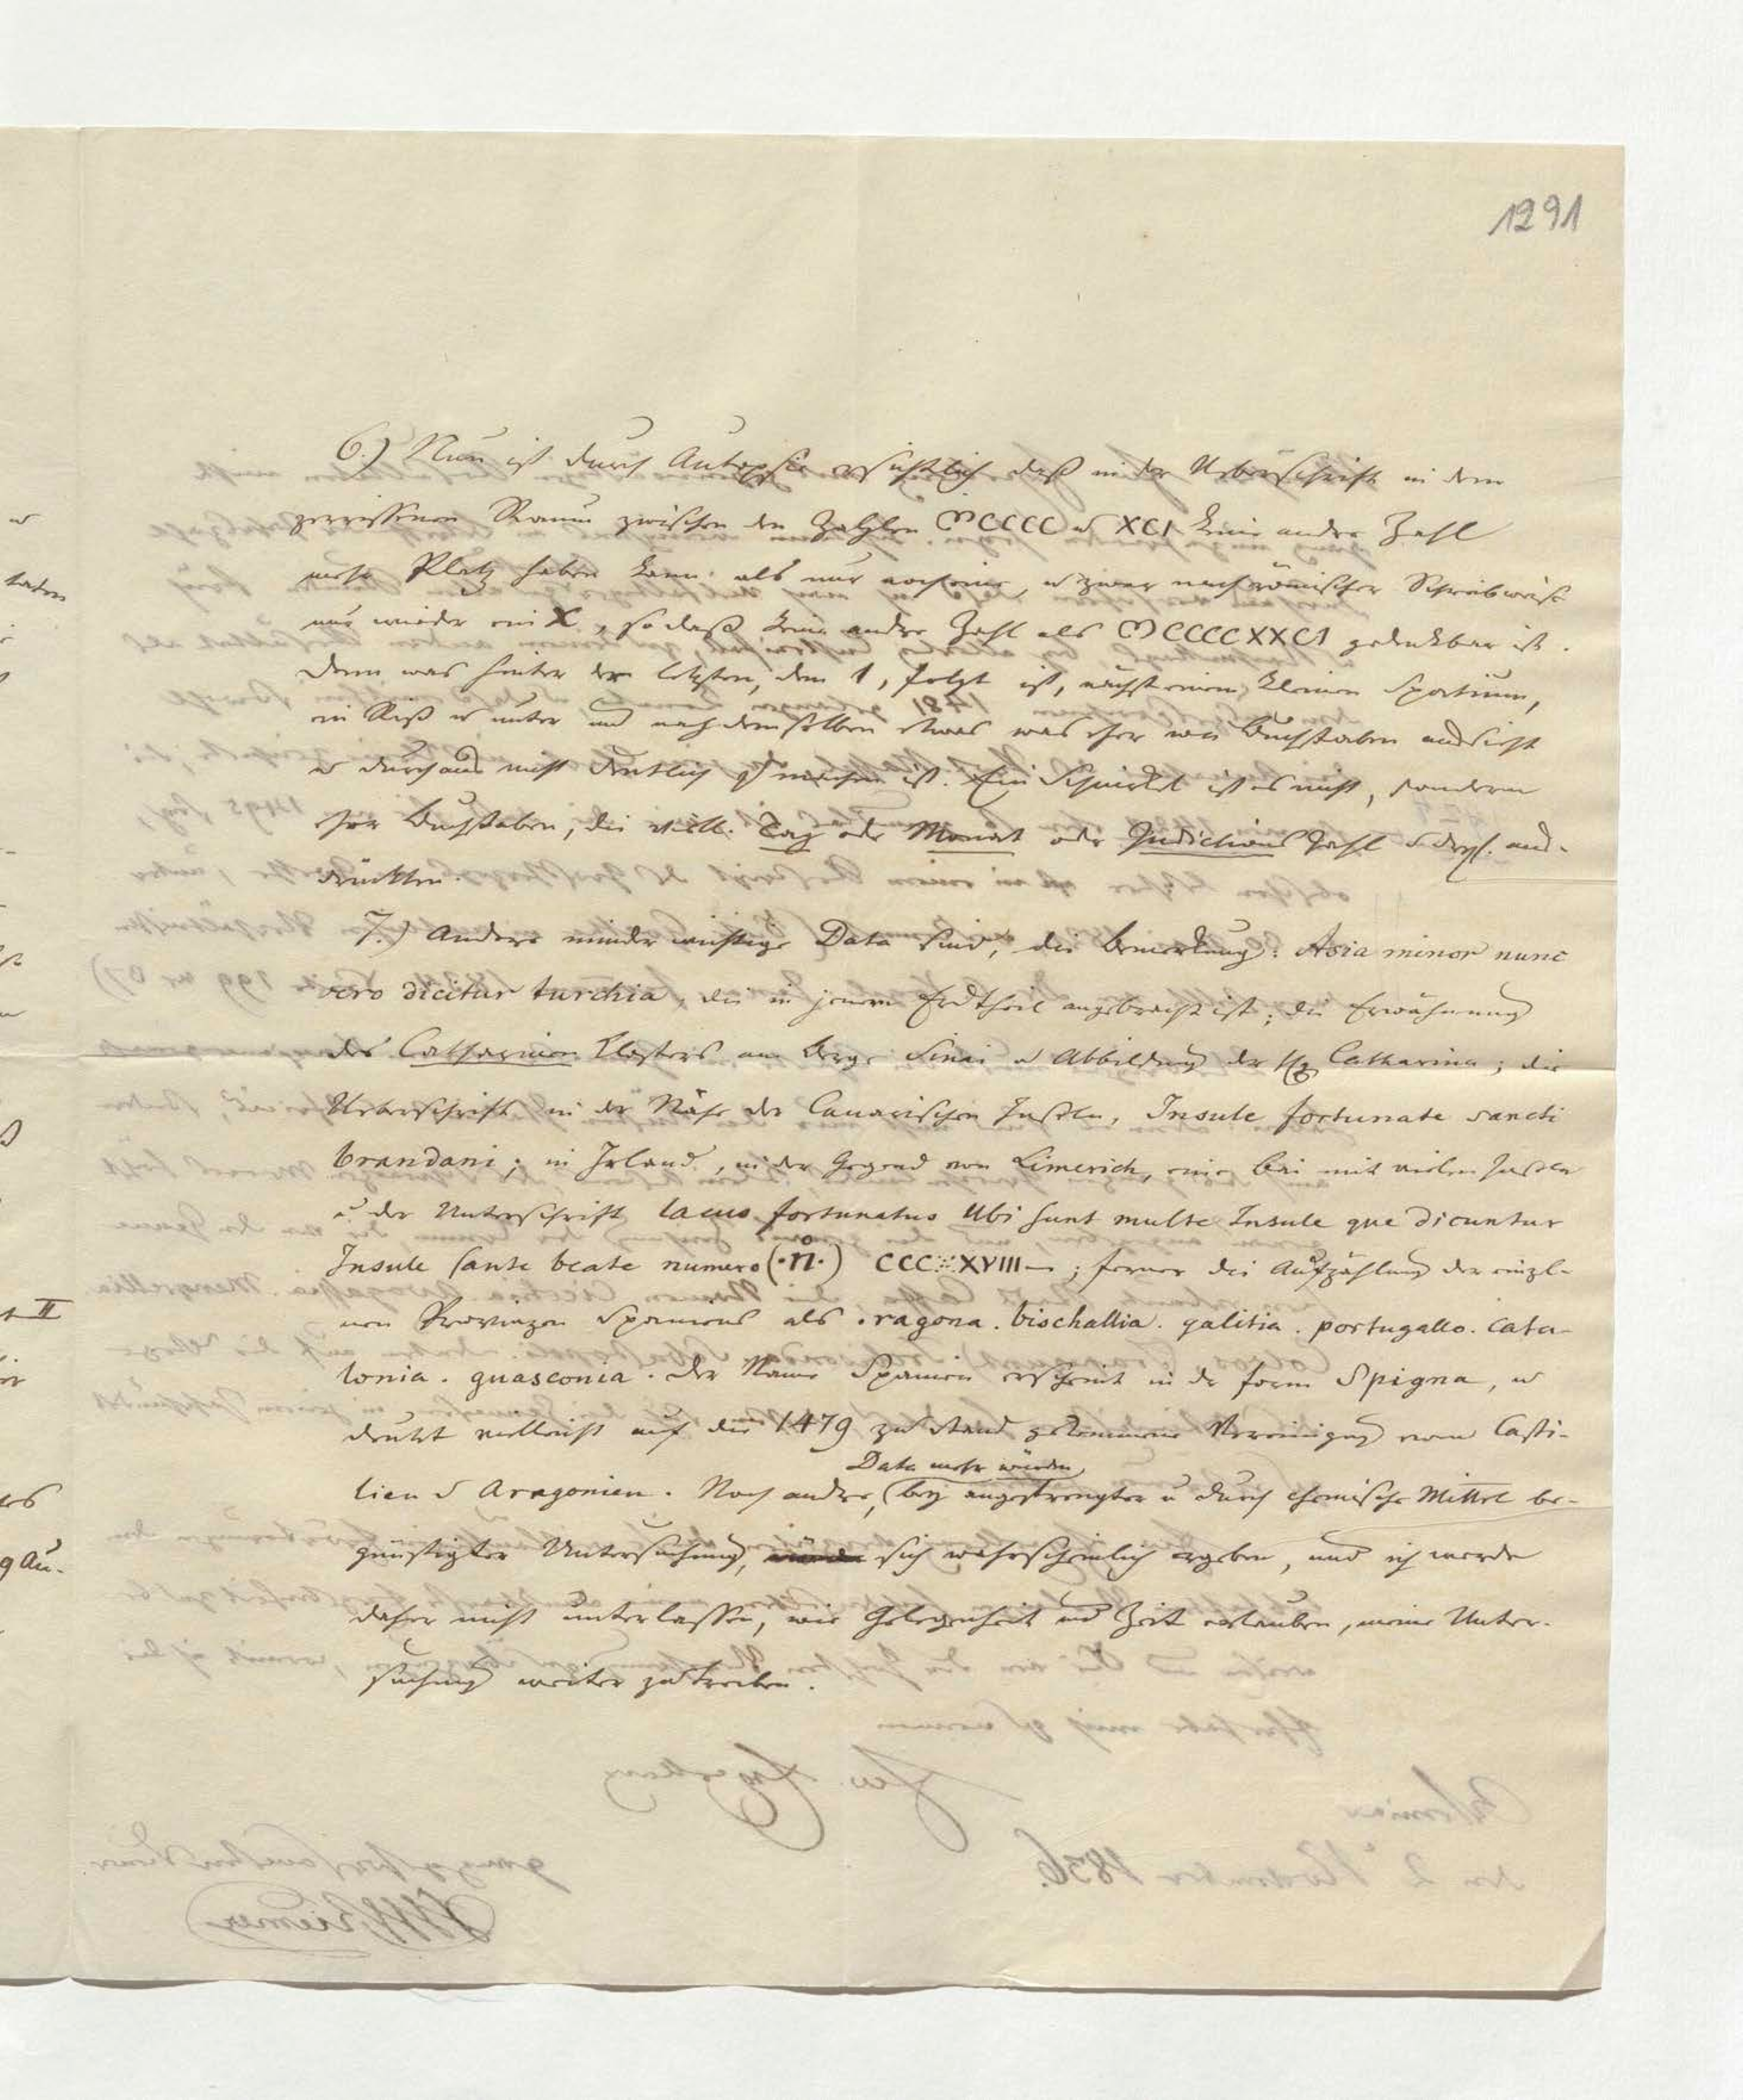 1291
6.) Nun ist durch Autopsie ersichtlich daß in der Ueberschrift in dem
zerrissenen Raum zwischen den Zahlen MCCCC u XCI keine andre Zahl
mehr Platz haben kann als nur noch eine, u zwar nach römischer Schreibweise
nur wieder ein X, so daß keine andre Zahl als MCCCCXXCI gedenkbar ist.
Denn was hinter der letzten, dem 1, folgt ist, nächst einem kleinen Spatium,
ein Riß u unter und nach demselben etwas was eher wie Buchstaben aussieht
u durchaus nicht deutlich zu machen ist. Ein Schnirkel ist es nicht, sondern
eher Buchstaben, die viell. Tag oder Monat oder Indictions Zahl u drgl. aus-
drückten.
7.) Andere minder wichtige Data sind, die Bemerkung: Asia minor nunc
vero dicitur turchia, die in jenem Erdtheil angebracht ist; die Erwähnung
des Catharinen Klosters am Berge Sinai u Abbildung der hlg Catharina; die
Ueberschrift in der Nähe der Canarischen Inseln, Insule fortunate sancti
brandani; in Irland, in der Gegend von Limerich, eine Bai mit vielen Inseln
u. der Unterschrift lacus fortunatus Ubi sunt multe Insule que dicuntur
Insule sante beate numero (·n·) CCC XVIII ; ferner die Aufzählung der einzel-
nen Provinzen Spaniens als ragona. bischallia. galitia. portugallo. Cata-
lonia. guasconia. Der Name Spanien erscheint in der form Spigna, u
deutet vielleicht auf die 1479 zu Stand gekommene Vereinigung von Casti-
Data mehr würden
lien u Aragonien. Noch andre, bey angestrengter u durch chemische Mittel be-
günstigter Untersuchung, würden sich wahrscheinlich ergeben, und ich werde
daher nicht unterlassen, wie Gelegenheit und Zeit erlauben, meine Unter-
suchung weiter zu treiben.